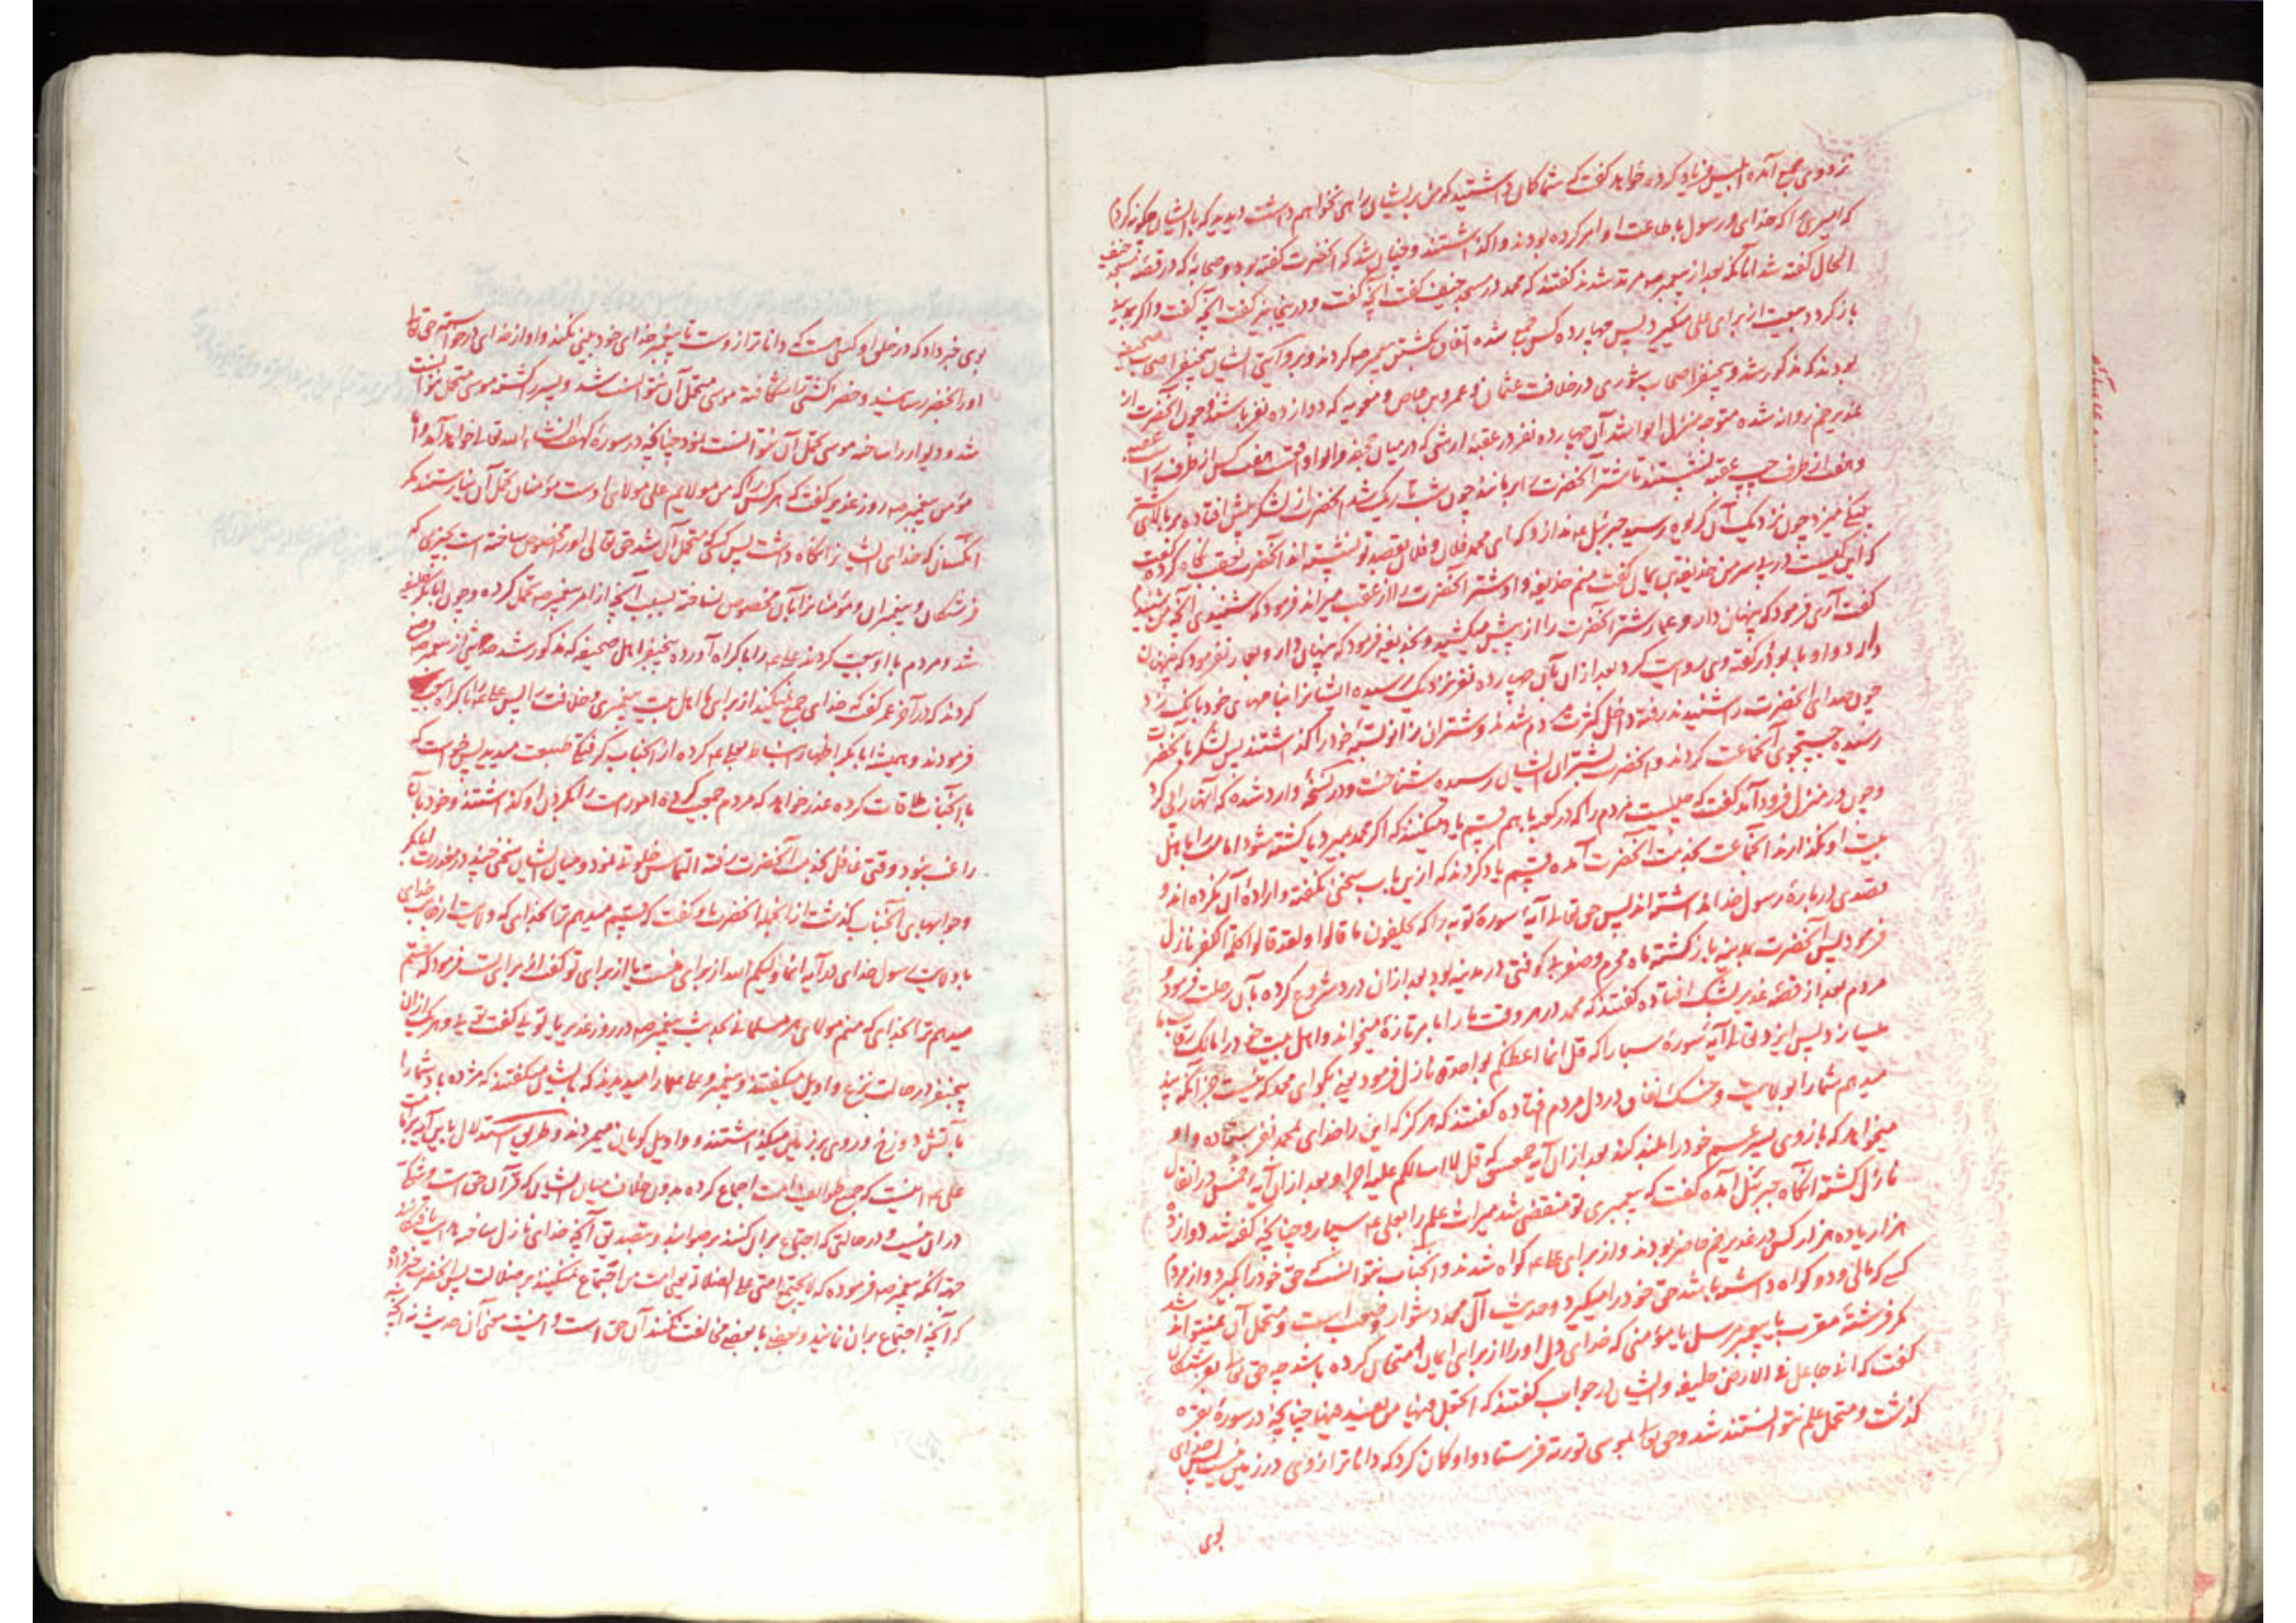 نزد وی جمع آمده ابلیس فریاد کرده خواهد گفت که شما گمان داشتید که من بر ایشان راهی نخواهم داشت دیدید که با ایشان چگونه کردم
که امیری را که خدای و رسول باطاعت او امر کرده بودند واگذاشتند و چنان شد که آنحضرت گفته بود و صحابه که در قصه مسجد خیف
الحال گفته شد اما آنکه بعد از پیغمبر مرتد شدند گفتند که محمد در مسجد خیف گفت آنچه گفت و در اینجا نیز گفت آنچه گفت و اگر بمدینه
باز گردد بیعت از برای علی میگیرد پس چهارده کس جمع شده اتفاق بکشتن پیغمبر کردند و
بودند که مذکور شد و پنج نفر اصحاب شوری در خلافت عثمان و عمرو بن عاص و معویه که دوازده نفر باشند و چون آنحضرت از
غدیر خم روانه شده متوجه منزل ابوا شد آن چهارده نفر در عقبه که در میان جحفه و ابوا هفت کس از طرف راست
و هفت از طرف چپ عقبه نشستند تا شتر آنحضرت را برمانند چون شب تاریک شد آنحضرت از لشکر پیش افتاده
چون نزدیک آن گریوه رسید جبرئیل ندا زد که ای محمد فلان و فلان بقصد تو نشسته اند آنحضرت بعقب نگاه کرده گفت
که این کیست در پس سر من حذیفه بن یمان گفت منم حذیفه و او شتر آنحضرت را از عقب میراند فرمود که شنیدی آنچه من شنیدم
گفت آری فرمود که پنهان دار و عمار شتر آنحضرت را از پیش میکشید و بحذیفه فرمود که پنهان دار و بعمار نفرمود که پنهان
دارد و او با بوذر گفته وی روایت کرد بعد از آن بآن چهارده نفر نزدیک رسیده ایشان را بنامهای خود بانگ زد
چون صدای آنحضرت را شنیدند رفته داخل کثرت مردم شدند و شتران زانو بسته خود را گذاشتند پس لشکر بآنحضرت
رسیده جستجوی آنجماعت کردند و آنحضرت بشتران ایشان رسیده شناخت
و چون در منزل فرود آمد گفت که چیست مردم را که در کعبه با هم قسم یاد میکنند که اگر محمد بمیرد یا کشته شود امامت باهل
بیت او نگذارند آنجماعت بخدمت آنحضرت آمده قسم یاد کردند که ازین باب سخنی نگفته و اراده آن نکرده اند و
قصدی درباره رسول خدا نداشته اند پس حق تعالی آیه سوره توبه را که یحلفون ما قالوا ولقد قالوا کلمة الکفر نازل
فرمود پس آنحضرت بمدینه بازگشته ماه محرم و صفر بی کوفتی در مدینه بود بعد از آن درد شروع کرده بآن رحلت فرمود و
مردم بعد از قصه غدیر بشک افتاده گفتند که محمد در هر وقت ما را بامر تازه میخواند و اهل بیت خود را مالک رقاب ما
میسازد پس ایزد تعالی آیه سوره سبا را که قل انما اعظکم بواحدة نازل فرمود یعنی بگو ای محمد که نیست جز آنکه پند
میدهم شما را بولایت و شک نفاق در دل مردم افتاده گفتند که هرگز که این را خدای بمحمد نفرستاده و او
میخواهد که بازوی پسر عم خود را بلند کند بعد از آن آیه که قل لا اسالکم علیه اجرا و بعد از آن آیه خمس در انفال
نازل گشته آنگاه جبرئیل آمده گفت که پیغمبری تو منقضی شد میراث علم را بعلی بسپار و چنانچه گفته شد دوازده
هزار یا ده هزار کس در غدیر خم حاضر بودند و از برای علی گواه شدند و آنجناب نتوانست که حق خود را بگیرد و از مردم
کسی که مالی و دو گواه داشته باشد حق خود را میگیرد و حدیث آل محمد دشوار و صعب است و متحمل آن نمیتواند شد
مگر فرشته مقرب یا پیغمبر مرسل یا مؤمنی که خدای دل او را از برای ایمان امتحان کرده باشد چه حق تعالی بفرشتگان
گفت که انی جاعل فی الارض خلیفه و ایشان در جواب گفتند که اتجعل فیها من یفسد فیها چنانچه در سوره بقره
گذشت و متحمل علم نتوانستند شد و حق تعالی بموسی توریة فرستاد و او گمان کرد که داناتر از وی در زمین نیست پس خدای
بوی
بوی خبر داد که در خلق او کسی هست که داناتر از اوست تا پیغمبر خدای خودبینی نکند و او از خدای درخواسته حق تعالی
او را بخضر رسانید و خضر کشتی را شکافته موسی متحمل آن نتوانست شد و پسر را کشته موسی متحمل نتوانست
شد و دیوار را ساخته موسی تحمل آن نتوانست نمود چنانچه در سوره کهف انشاء الله تعالی خواهد آمد و اما
مؤمن پیغمبر روز غدیر گفت که هر کس را که من مولایم علی مولای اوست مؤمنان تحمل آن نیارستند مگر
آنکسان که خدای ایشان را نگاه داشت پس کسی که متحمل آن شد حق تعالی او را مخصوص ساخته است بچیزی که
فرشتگان و پیغمبران و مؤمنان را بآن مخصوص نساخته بسبب آنچه از امر پیغمبر تحمل کرده و چون ابابکر خلیفه
شد و مردم با او بیعت کردند علی را باکراه آورده پنج نفر اهل صحیفه که مذکور شد حدیثی از پیغمبر وضع
کردند که در آخر عمر گفت که خدای جمع نمیکند از برای ما اهل بیت پیغمبری و خلافت را پس علی باکراه بیعت
فرمودند و همیشه ابابکر اظهار انبساط بعلی کرده از آنجناب گرفتگی طبیعت میدید پس خواست که
با آنجناب ملاقات کرده عذر خواهد که مردم جمعیت کرده امور امت را بگردن او گذاشتند و خود بآن
راغب نبود وقتی غافل بخدمت آنحضرت رفته التماس خلوت نمود و میان ایشان سخنی چند در معذرت ابابکر
و جوابهای آنجناب گذشت از آنجمله آنحضرت باو گفت که قسم میدهم ترا بخدای که ولایت از جانب خدای
با ولایت رسول خدای در آیه انما ولیکم الله از برای منست یا از برای تو گفت از برای تست فرمود که قسم
میدهم ترا بخدای که منم مولای هر مسلمانی بحدیث پیغمبر در روز غدیر یا توئی گفت توئی و هر یک ازان
پنج نفر در حالت نزع واویل میگفتند و پیغمبر و علی را میدیدند که بایشان میگفتند که مژده باد شما را
بآتش دوزخ و روی بر زمین میگذاشتند و واویل گویان میمردند و طریق استدلال باین آیه بر امامت
علی اینست که جمیع طوایف امت اجماع کرده بدون خلاف میان ایشان که قرآن حق است و شکی
در آن نیست و در حالتی که اجتماع بر آن کنند بر صوابند و بتصدیق آنچه خدای نازل ساخته
جهة آنکه پیغمبر فرموده که لا یجتمع امتی علی الضلالة یعنی امت من اجتماع نمیکنند بر ضلالت پس آنحضرت خبر داد
که آنچه اجتماع بران نمایند و بعضی با بعضی مخالفت نکنند آن حق است و اینست معنی آن حدیث نه آنچه